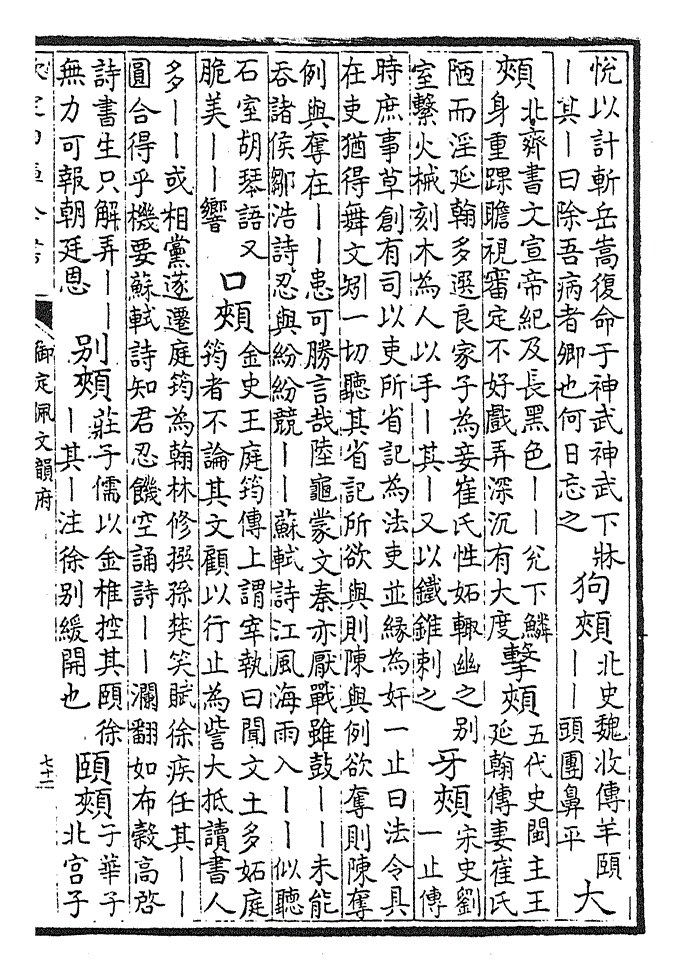 恱以計斬岳嵩復命于神武神武下牀
丨其丨曰除吾病者卿也何日忘之
狗頰
北史魏收傳羊頤
丨丨頭團鼻平
大
頰
北齊書文宣帝紀及長黑色丨丨兊下鱗
身重踝瞻視審定不好戲弄深沉有大度
擊頰
五代史閩主王
延翰傳妻崔氏
陋而淫延翰多選良家子為妾崔氏性妬輙幽之别
室繫火械刻木為人以手丨其丨又以鐵錐刺之
牙頰
宋史劉
一止傳
時庶事草創有司以吏所省記為法吏並縁為奸一止曰法令具
在吏猶得舞文矧一切聽其省記所欲與則陳與例欲奪則陳奪
例與奪在丨丨患可勝言哉陸龜蒙文秦亦厭戰雖鼓丨丨未能
吞諸侯鄒浩詩忍與紛紛競丨丨蘇軾詩江風海雨入丨丨似聽
石室胡琴語又
脆美丨丨響
口頰
金史王庭筠傳上謂宰執曰聞文土多妬庭
筠者不論其文顧以行止為訾大抵讀書人
多丨丨或相黨遂遷庭筠為翰林修撰孫楚笑賦徐疾任其丨丨
圓合得乎機要蘇軾詩知君忍饑空誦詩丨丨瀾翻如布穀高啓
詩書生只解弄丨丨
無力可報朝廷恩
别頰
莊子儒以金椎控其頤徐
丨其丨注徐别緩開也
頤頰
子華子
北宫子
御定佩文韻府
七十二